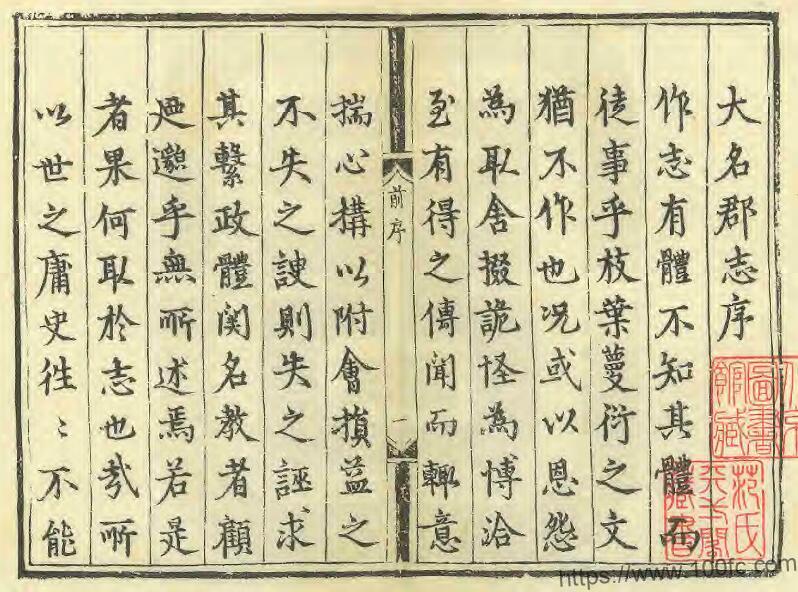 大名郡志序
作志有體不知其體而
徒事乎枝葉蔓衍之文
猶不作也况或以恩怨
為取舍掇詭怪為愽洽
至有得之傳聞而輙意
前序
一
揣心搆以附會損益之
不失之諛則失之誣求
其繫政體関名教者顧
廼邈乎無所述焉若是
者果何取於志也哉所
以世之庸史徃〻不能
圖書
館藏
范氏
天一閣
藏書
https://www.100fc.com